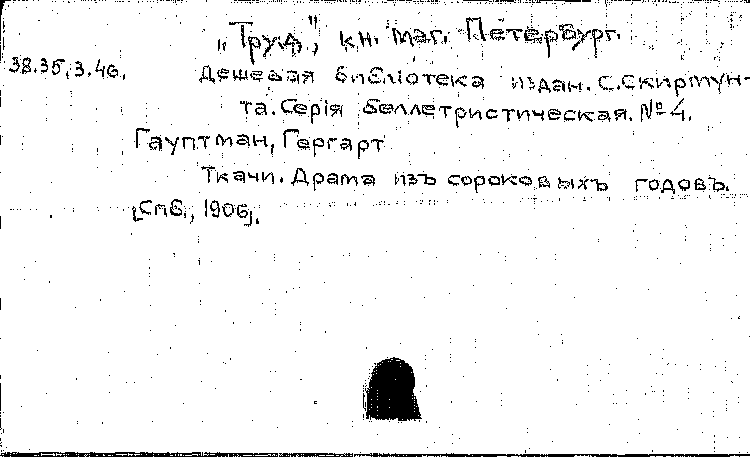 „Труд", кн. маг. Петербург.
38.35.3.46.
Дешевая библіотека издан. С. Скирмун-
та. Серія беллетристическая. № 4.
Гауптман, Гергарт
Ткачи. Драма изъ сороковыхъ годовъ.
[Спб., 1906].